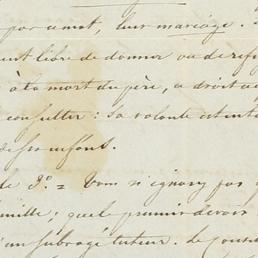 par amont, leur mariage.
ent libre de donner ou de ref
à la mort du père, a droit a
consulter : sa volonté est ent
de ses enfans.
de 3º = Vous n'ignorez pas q
mille ; quel premier devoir
d'un subrogé tuteur. Le Conse